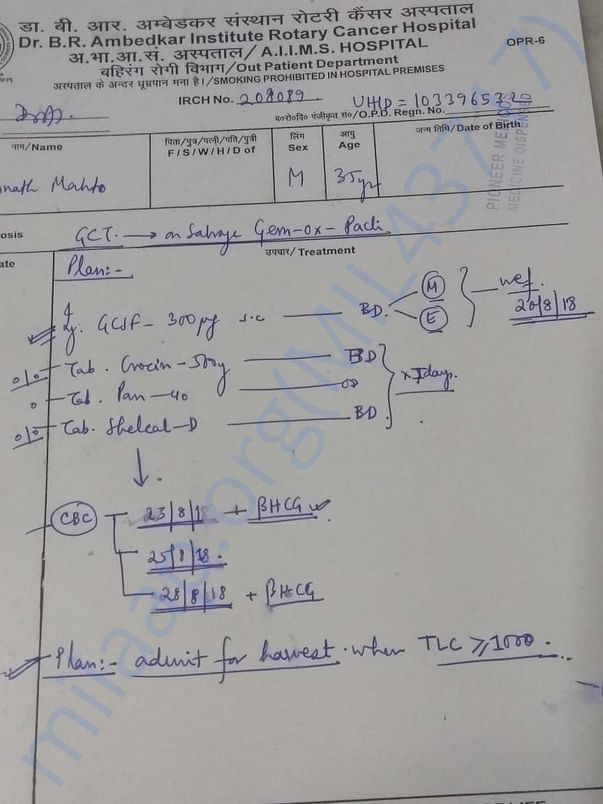 डा. बी. आर. अम्बेडकर संस्थान रोटरी कैंसर अस्पताल
Dr. B.R. Ambedkar Institute Rotary Cancer Hospital
अ.भा.आ.सं. अस्पताल/ A.I.I.M.S. HOSPITAL
OPR-6
बहिरंग रोगी विभाग/Out Patient Department
अस्पताल के अन्दर धूम्रपान मना है।/SMOKING PROHIBITED IN HOSPITAL PREMISES
IRCH No. 208089 UHID = 1033965320
ब०रो०वि० पंजीकृत सं०/O.P.D. Regn. No.
नाम/Name
पिता/पुत्र/पत्नी/पति/पुत्री
F/S/W/H/D of
लिंग
Sex
आयु
Age
जन्म तिथि/Date of Birth
nath Mahto
M
35yr
PIONEER MED
MEDICINE DISPENS
osis
GCT. → on Salvage Gem-ox-Pacli
ate
उपचार/ Treatment
Plan:-
Iy. GCSF- 300µg s.c BD. M E wef 20/8/18
Tab. Crocin-500g BD
Tab. Pan-40 OD
Tab. Shelcal-D BD.
CBC 23/8/18 + βHCG
25/8/18.
28/8/18 + βHCG
Plan:- admit for harvest. when TLC ≥1000.
milaap.org(MIL43717)